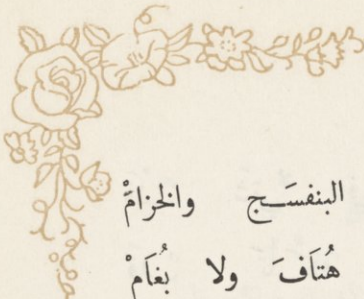 البنفسَـج والخزامْ
هُتَافَ ولا بُغَامْ